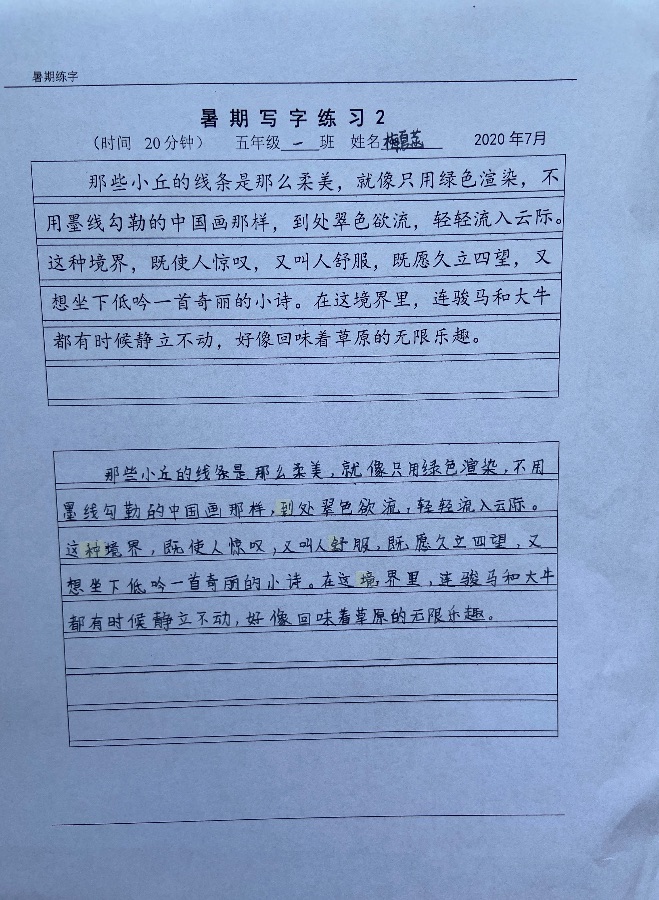 暑期练字
暑期写字练习2
（时间 20分钟） 五年级一班 姓名梅 2020年7月
那些小丘的线条是那么柔美，就像只用绿色渲染，不
用墨线勾勒的中国画那样，到处翠色欲流，轻轻流入云际。
这种境界，既使人惊叹，又叫人舒服，既愿久立四望，又
想坐下低吟一首奇丽的小诗。在这境界里，连骏马和大牛
都有时候静立不动，好像回味着草原的无限乐趣。
那些小丘的线条是那么柔美，就像只用绿色渲染，不用
墨线勾勒的中国画那样，到处翠色欲流，轻轻流入云际。
这种境界，既使人惊叹，又叫人舒服，既愿久立四望，又
想坐下低吟一首奇丽的小诗。在这境界里，连骏马和大牛
都有时候静立不动，好像回味着草原的无限乐趣。